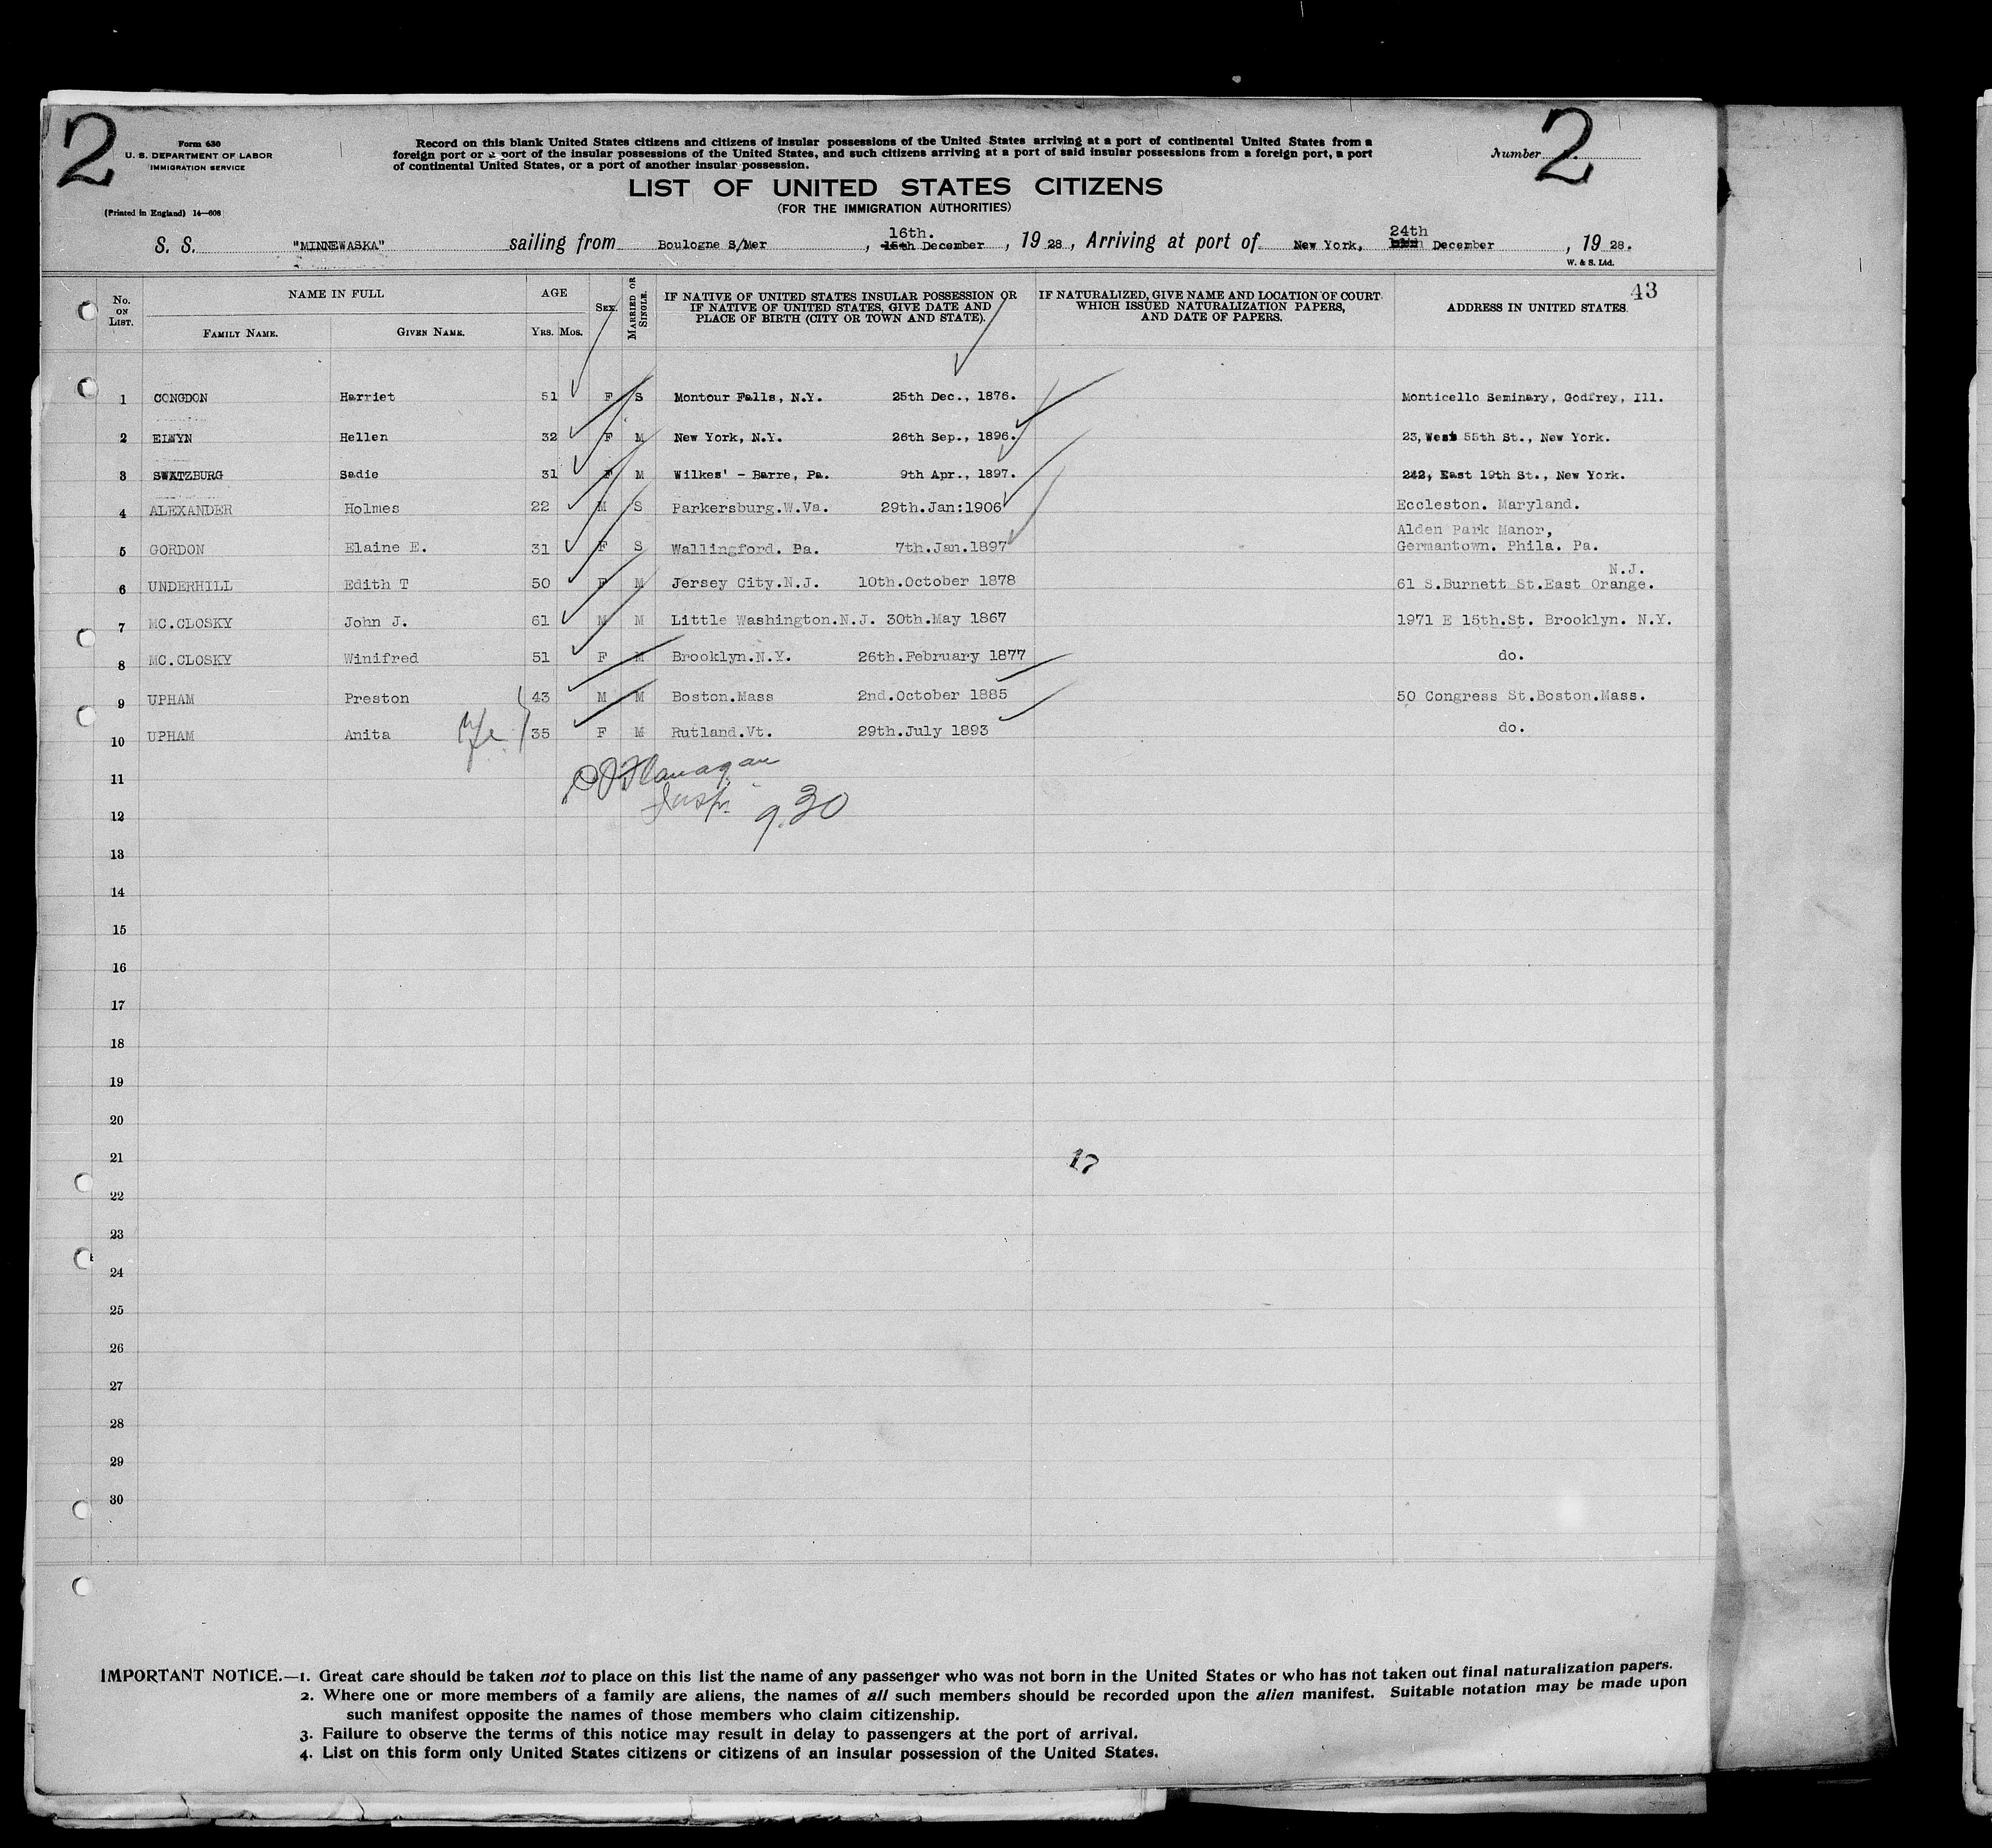 2
2
Form 630
U. S. DEPARTMENT OF LABOR
IMMIGRATION SERVICE
(Printed in England) 14—608
Record on this blank United States citizens and citizens of insular possessions of the United States arriving at a port of continental United States from a
foreign port or a port of the insular possessions of the United States, and such citizens arriving at a port of said insular possessions from a foreign port, a port
of continental United States, or a port of another insular possession.
Number
LIST OF UNITED STATES CITIZENS
(FOR THE IMMIGRATION AUTHORITIES)
16th. 24th
S. S. "MINNEWASKA" sailing from Boulogne S/Mer, 15th December, 1928, Arriving at port of New York, December, 1928.
W. & S. Ltd.
43
No. ON LIST. NAME IN FULL AGE SEX. MARRIED OR SINGLE. IF NATIVE OF UNITED STATES INSULAR POSSESSION OR IF NATIVE OF UNITED STATES, GIVE DATE AND PLACE OF BIRTH (CITY OR TOWN AND STATE). IF NATURALIZED, GIVE NAME AND LOCATION OF COURT WHICH ISSUED NATURALIZATION PAPERS, AND DATE OF PAPERS. ADDRESS IN UNITED STATES
FAMILY NAME. GIVEN NAME. YRS. MOS.
1 CONGDON Harriet 51 F S Montour Falls, N.Y. 25th Dec., 1876. Monticello Seminary, Godfrey, Ill.
2 ELWYN Hellen 32 F M New York, N.Y. 26th Sep., 1896. 23, West 55th St., New York.
3 SWATZBURG Sadie 31 F M Wilkes' - Barre, Pa. 9th Apr., 1897. 242, East 19th St., New York.
4 ALEXANDER Holmes 22 M S Parkersburg.W.Va. 29th.Jan:1906 Eccleston. Maryland.
Alden Park Manor,
5 GORDON Elaine E. 31 F S Wallingford. Pa. 7th.Jan.1897 Germantown. Phila. Pa.
N.J.
6 UNDERHILL Edith T 50 F M Jersey City.N.J. 10th.October 1878 61 S.Burnett St.East Orange.
7 MC.CLOSKY John J. 61 M M Little Washington.N.J. 30th.May 1867 1971 E 15th.St. Brooklyn. N.Y.
8 MC.CLOSKY Winifred 51 F M Brooklyn.N.Y. 26th.February 1877 do.
9 UPHAM Preston 43 M M Boston.Mass 2nd.October 1885 50 Congress St.Boston.Mass.
10 UPHAM Anita 35 F M Rutland.Vt. 29th.July 1893 do.
11 Flanagan
12 Insp. 9.30
13
14
15
16
17
18
19
20
21
22
23
24
25
26
27
28
29
30
IMPORTANT NOTICE.—1. Great care should be taken not to place on this list the name of any passenger who was not born in the United States or who has not taken out final naturalization papers.
2. Where one or more members of a family are aliens, the names of all such members should be recorded upon the alien manifest. Suitable notation may be made upon
such manifest opposite the names of those members who claim citizenship.
3. Failure to observe the terms of this notice may result in delay to passengers at the port of arrival.
4. List on this form only United States citizens or citizens of an insular possession of the United States.